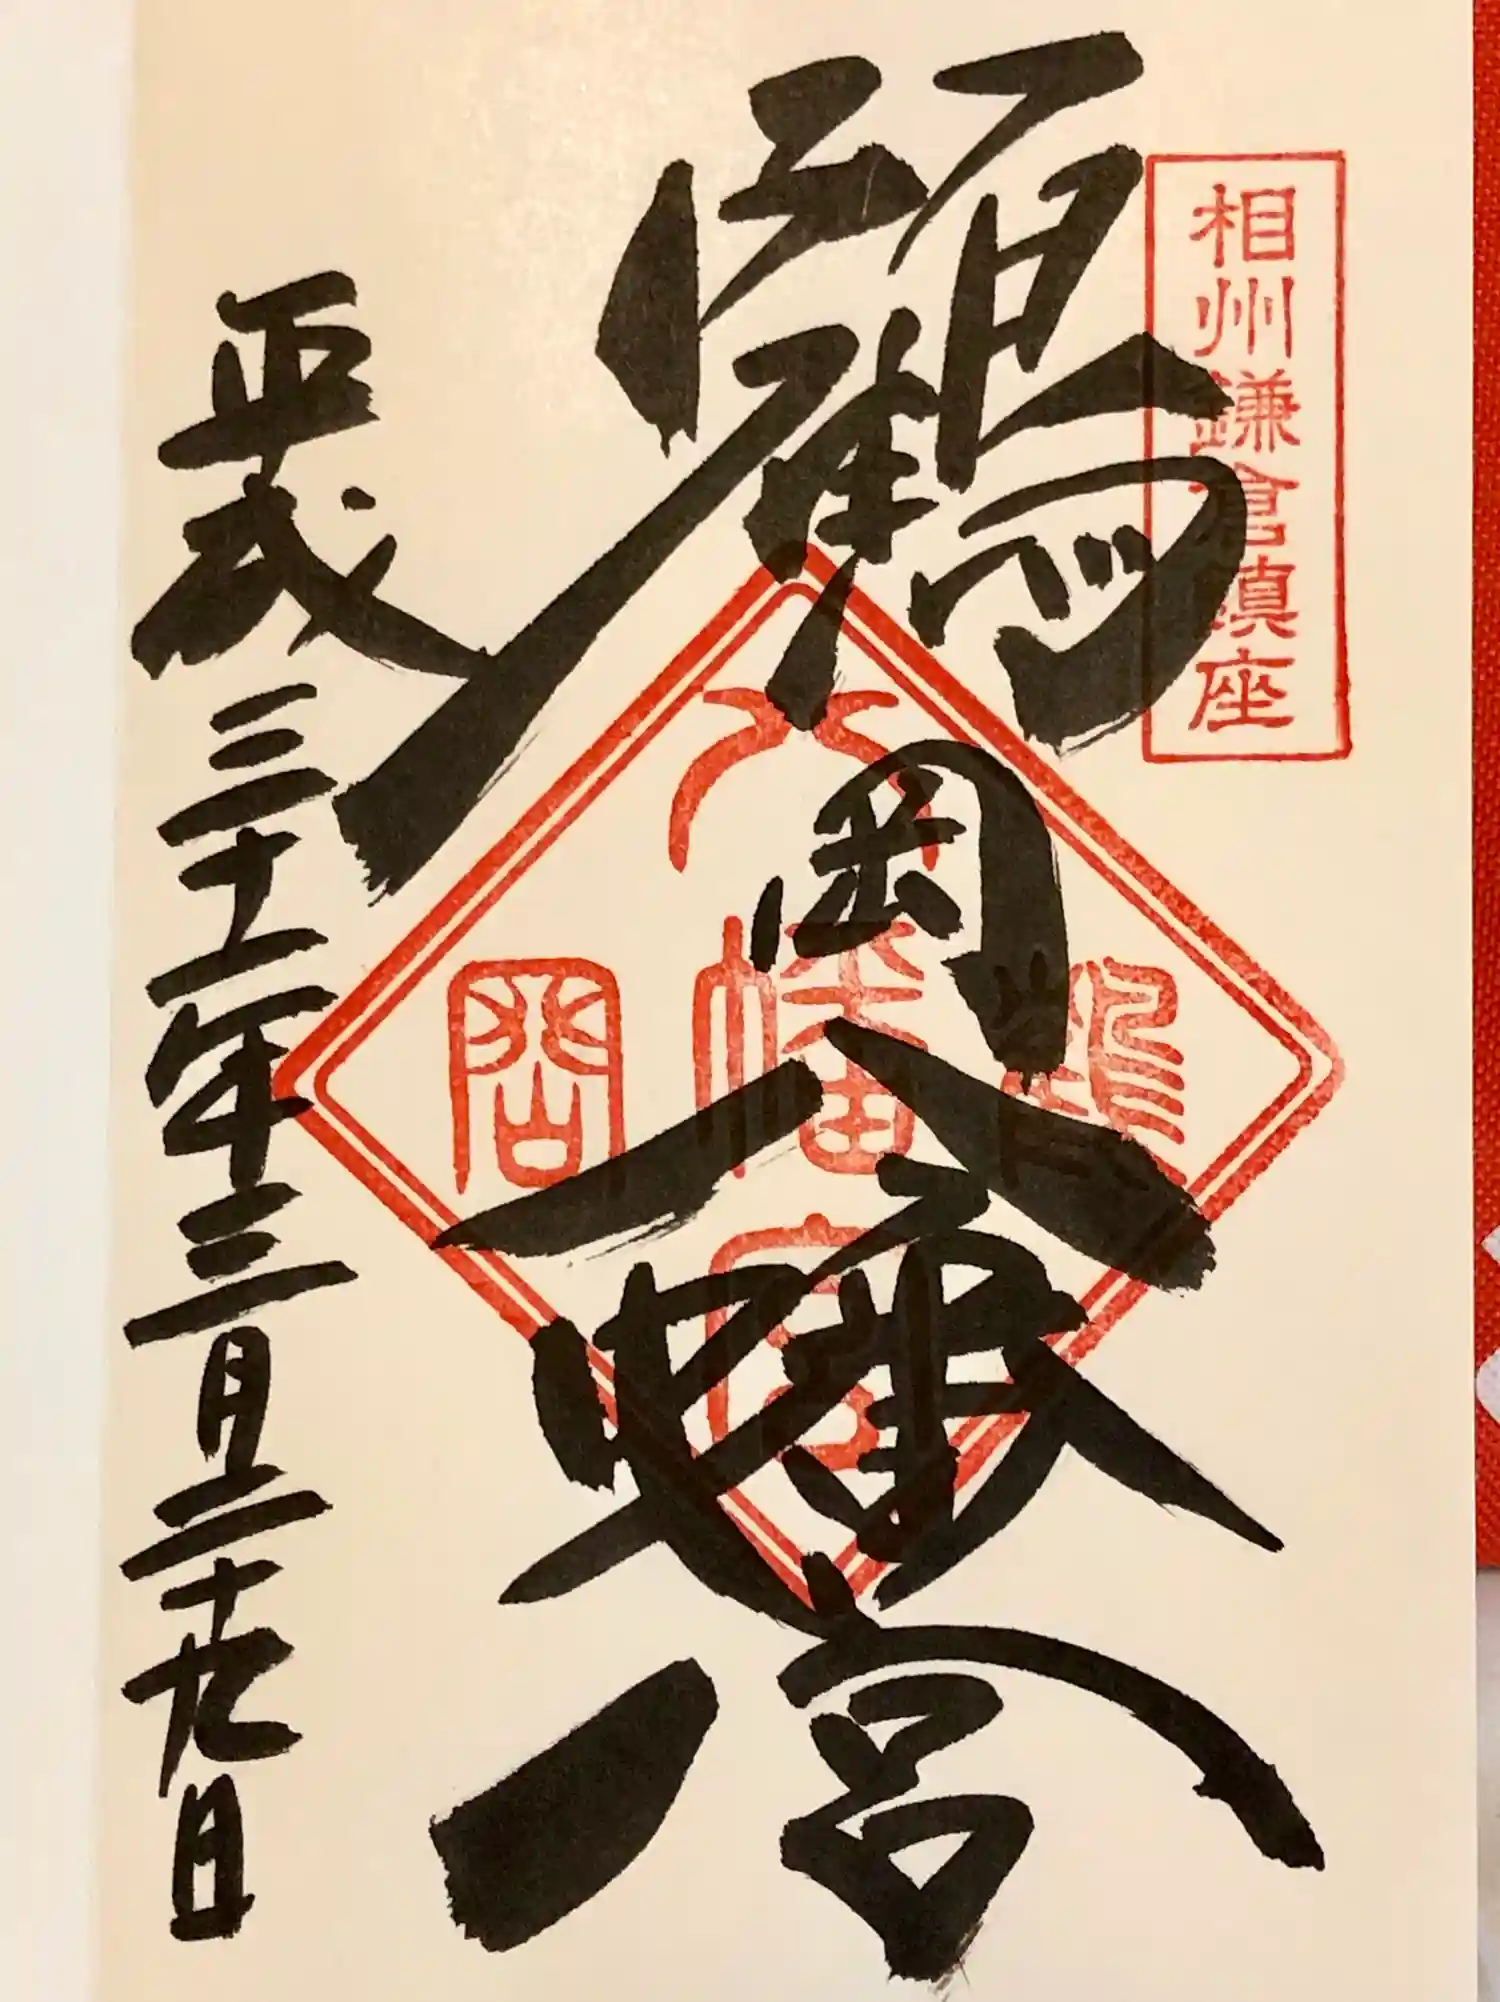 相州鎌倉鎮座
鶴岡八幡宮
鶴岡八幡宮
平成三十一年三月二十九日